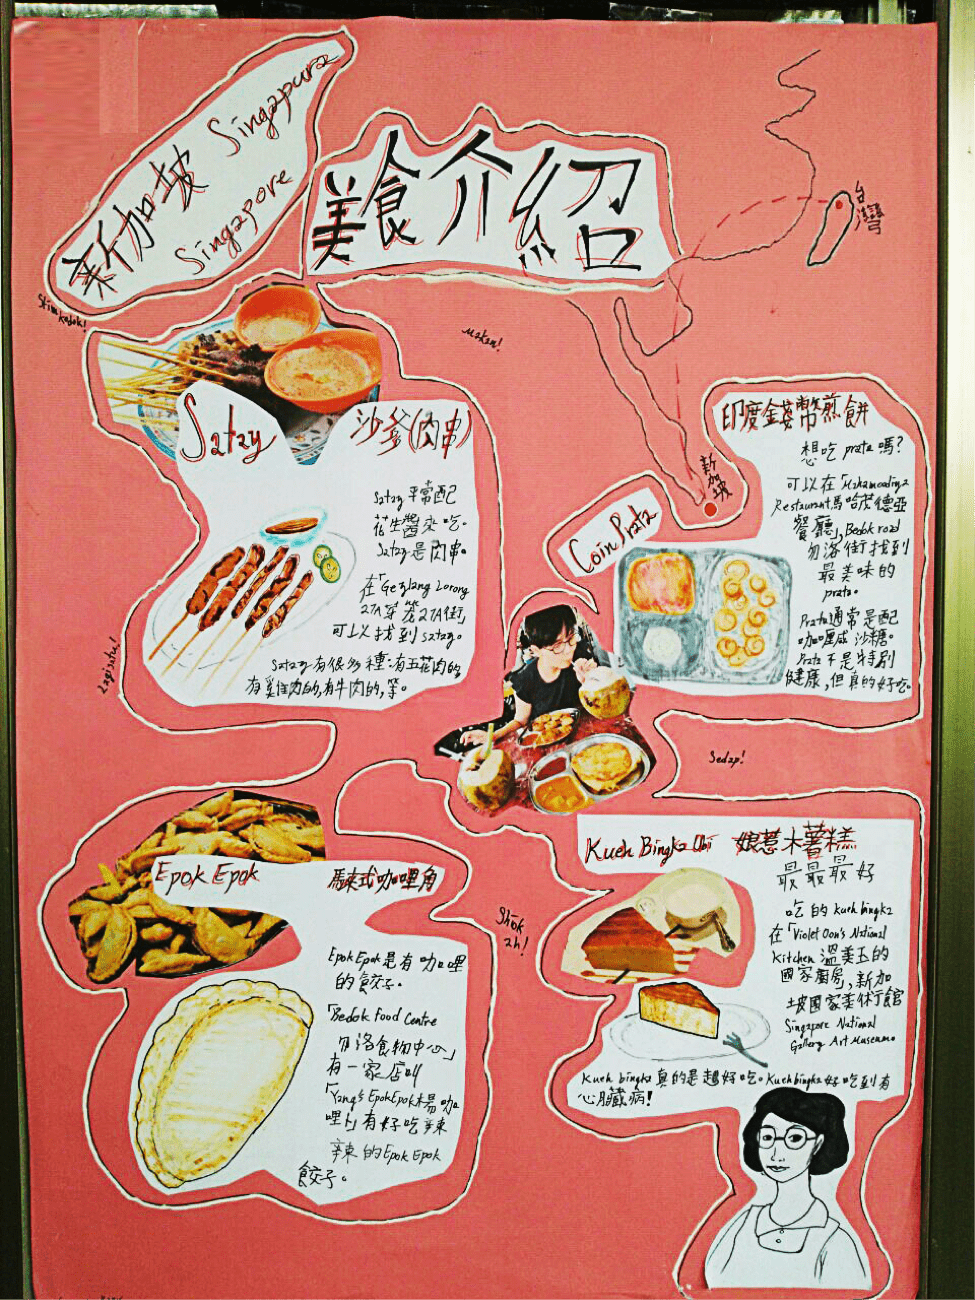 新加坡 Singapura
Singapore
美食介紹
台灣
新加坡
Makan!
Lagi satu!
Sedap!
Shiok
ah!
Satay 沙爹(肉串)
Satay 平常配
花生醬來吃。
Satay是肉串。
在「Geylang Lorong
27A芽籠27A街」
可以找到satay。
Satay有很多種:有五花肉的,
有雞肉的,有牛肉的,等。
印度錢幣煎餅
Coin Prata
想吃 prata 嗎?
可以在「
Restaurant馬哈茂德亞
餐廳」, Bedok road
勿洛街找到
最美味的
prata。
Prata通常是配
咖喱或沙糖。
Prata 不是特別
健康,但真的好吃。
Epok Epok 馬來式咖哩角
Epok Epok是有咖哩
的餃子。
「Bedok Food Centre
勿洛食物中心」
有一家店叫
「Yang's EpokEpok楊咖
哩卜」有好吃辣
辣的Epok Epok
餃子。
Kueh Bingka Ubi 娘惹木薯糕
最最最好
吃的 kueh bingka
在「Violet Oon's National
Kitchen 溫美玉的
國家廚房」,新加
坡國家美術館
Singapore National
Gallery Art Museum。
Kueh bingka真的是超好吃。Kueh bingka好吃到有
心臟病!